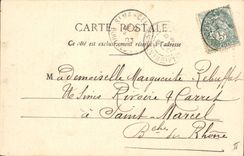 CARTE POSTALE
Ce côté est exclusivement réservé à l'adresse
Mademoiselle Marguerite Rebuffet
Usines Rivoire & Carret
à Saint-Marcel
Bches du Rhône